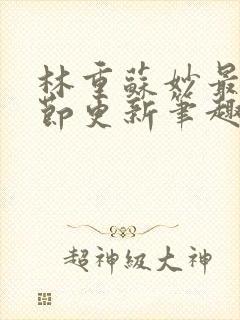 林重蘇妙最
節更新筆趣
超神級大神